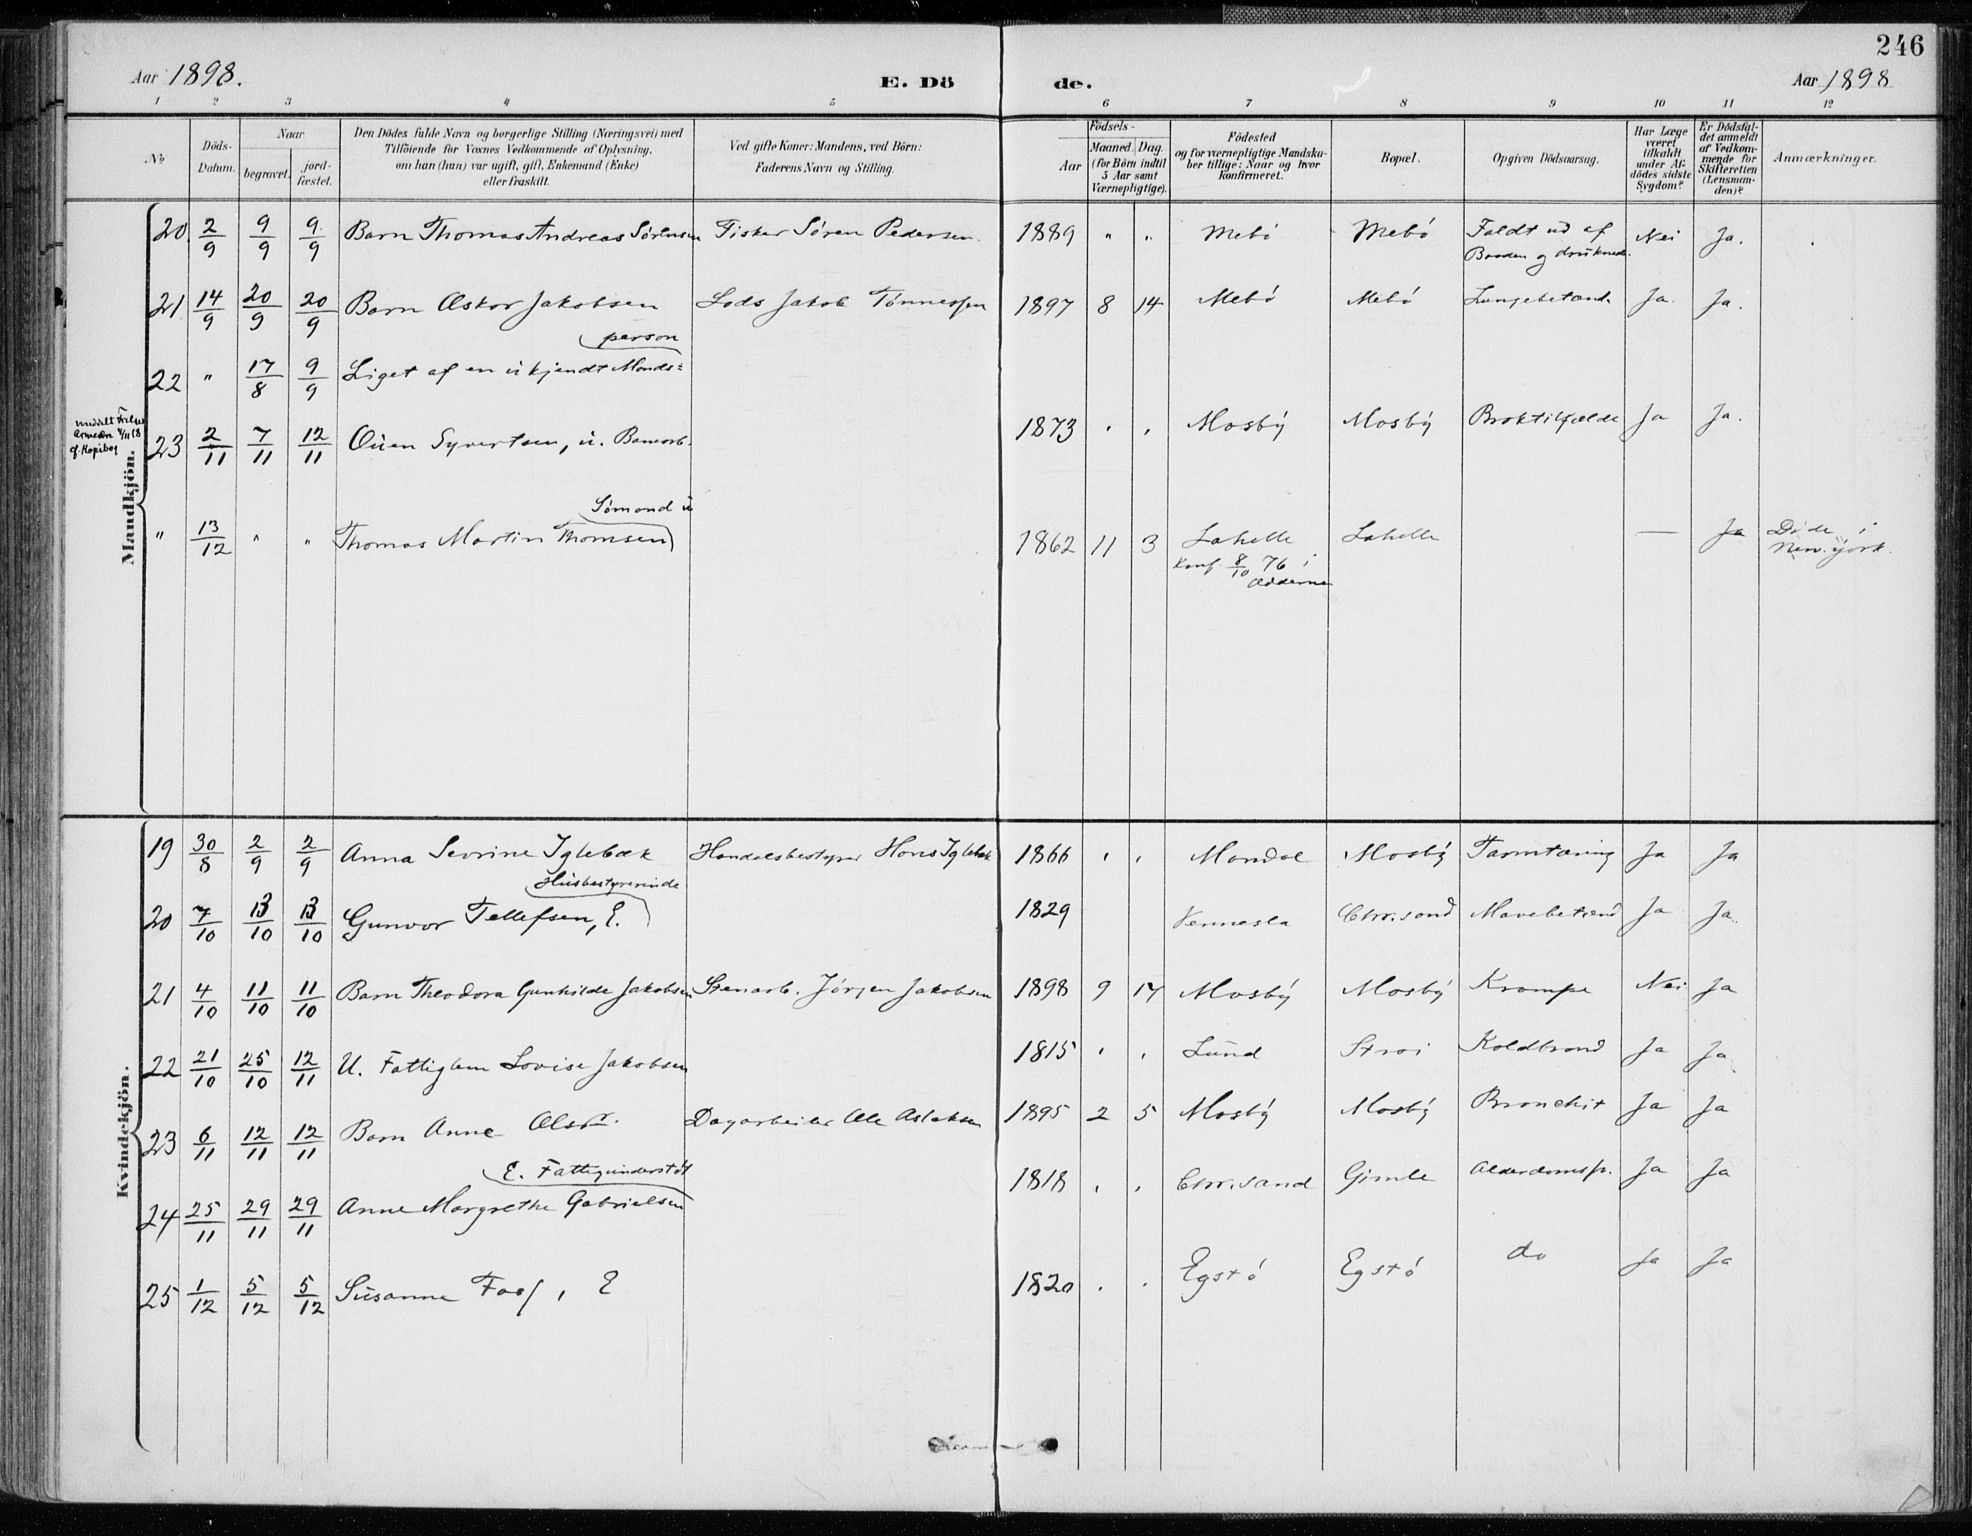 246
Aar 1898.
E. Dö
de.
Aar 1898
1 2 3 4 5 6 7 8 9 10 11 12
No
Döds-Datum.
Naar
begravet.
jordfæstet.
Den Dödes fulde Navn og borgerlige Stilling (Næringsvei) med
Tilföiende for Voxnes Vedkommende af Oplysning,
om han (hun) var ugift, gift, Enkemand (Enke)
eller fraskilt.
Ved gifte Koner: Mandens, ved Börn:
Faderens Navn og Stilling.
Födsels-
Aar
Maaned. Dag.
(for Börn indtil
5 Aar samt
Værnepligtige).
Födested
og for værnepligtige Mandskaber tillige: Naar og hvor
Konfirmeret.
Bopæl.
Opgiven Dödsaarsag.
Har Læge
været
tilkaldt
under Afdödes sidste
Sygdom?
Er Dödsfaldet anmeldt
af Vedkommende for
Skifteretten
(Lensmanden)?
Anmærkninger.
Mandkjön.
20 2/9 9/9 9/9 Barn Thomas Andreas Sörensen Fisker Sören Pedersen 1889 " " Mebö Mebö Faldt ud af Baaden og druknede. Nei Ja.
21 14/9 20/9 20/9 Barn Oskar Jakobsen Lods Jakob Tönnessen 1897 8 14 Mebö Mebö Lungebetænd. Ja Ja.
person
22 " 17/8 9/9 Liget af en ukjendt Mands=
23 2/11 7/11 12/11 Ouen Syvertsen, u. Banearb. 1873 " " Mosby Mosby Broktilfælde Ja Ja.
Sömand u
" 13/12 " " Thomas Martin Thomsen 1862 11 3 Lahelle Lahelle — Ja Döde i New. York.
Konf. 8/10 76 i
Odderness
Kvindekjön.
19 30/8 2/9 2/9 Anna Sevrine Iglebæk Handelsbestyrer Hans Iglebæk 1866 " " Mandal Mosby Tarmtæring Ja Ja
Husbestyrerinde
20 7/10 13/10 13/10 Gunvor Tellefsen, E. 1829 Vennesla Chr.sand Mavebetænd Ja Ja.
21 4/10 11/10 11/10 Barn Theodora Gunhilde Jakobsen Stenarb. Jörgen Jakobsen 1898 9 17 Mosby Mosby Krampe Nei Ja
22 21/10 25/10 12/11 U. Fattiglem Lovise Jakobsen 1815 " " Lund Strai Koldbrand Ja Ja.
23 6/11 12/11 12/11 Barn Anne Olsdr. Dagarbeider Ole Aslaksen 1895 2 5 Mosby Mosby Bronchit Ja Ja
E. Fattigunderstöt
24 25/11 29/11 29/11 Anne Margrethe Gabrielsen 1818 " " Chr.sand Gimle Alderdomssv. Ja Ja
25 1/12 5/12 5/12 Susanne , E 1820 " " Egstö Egstö do Ja Ja